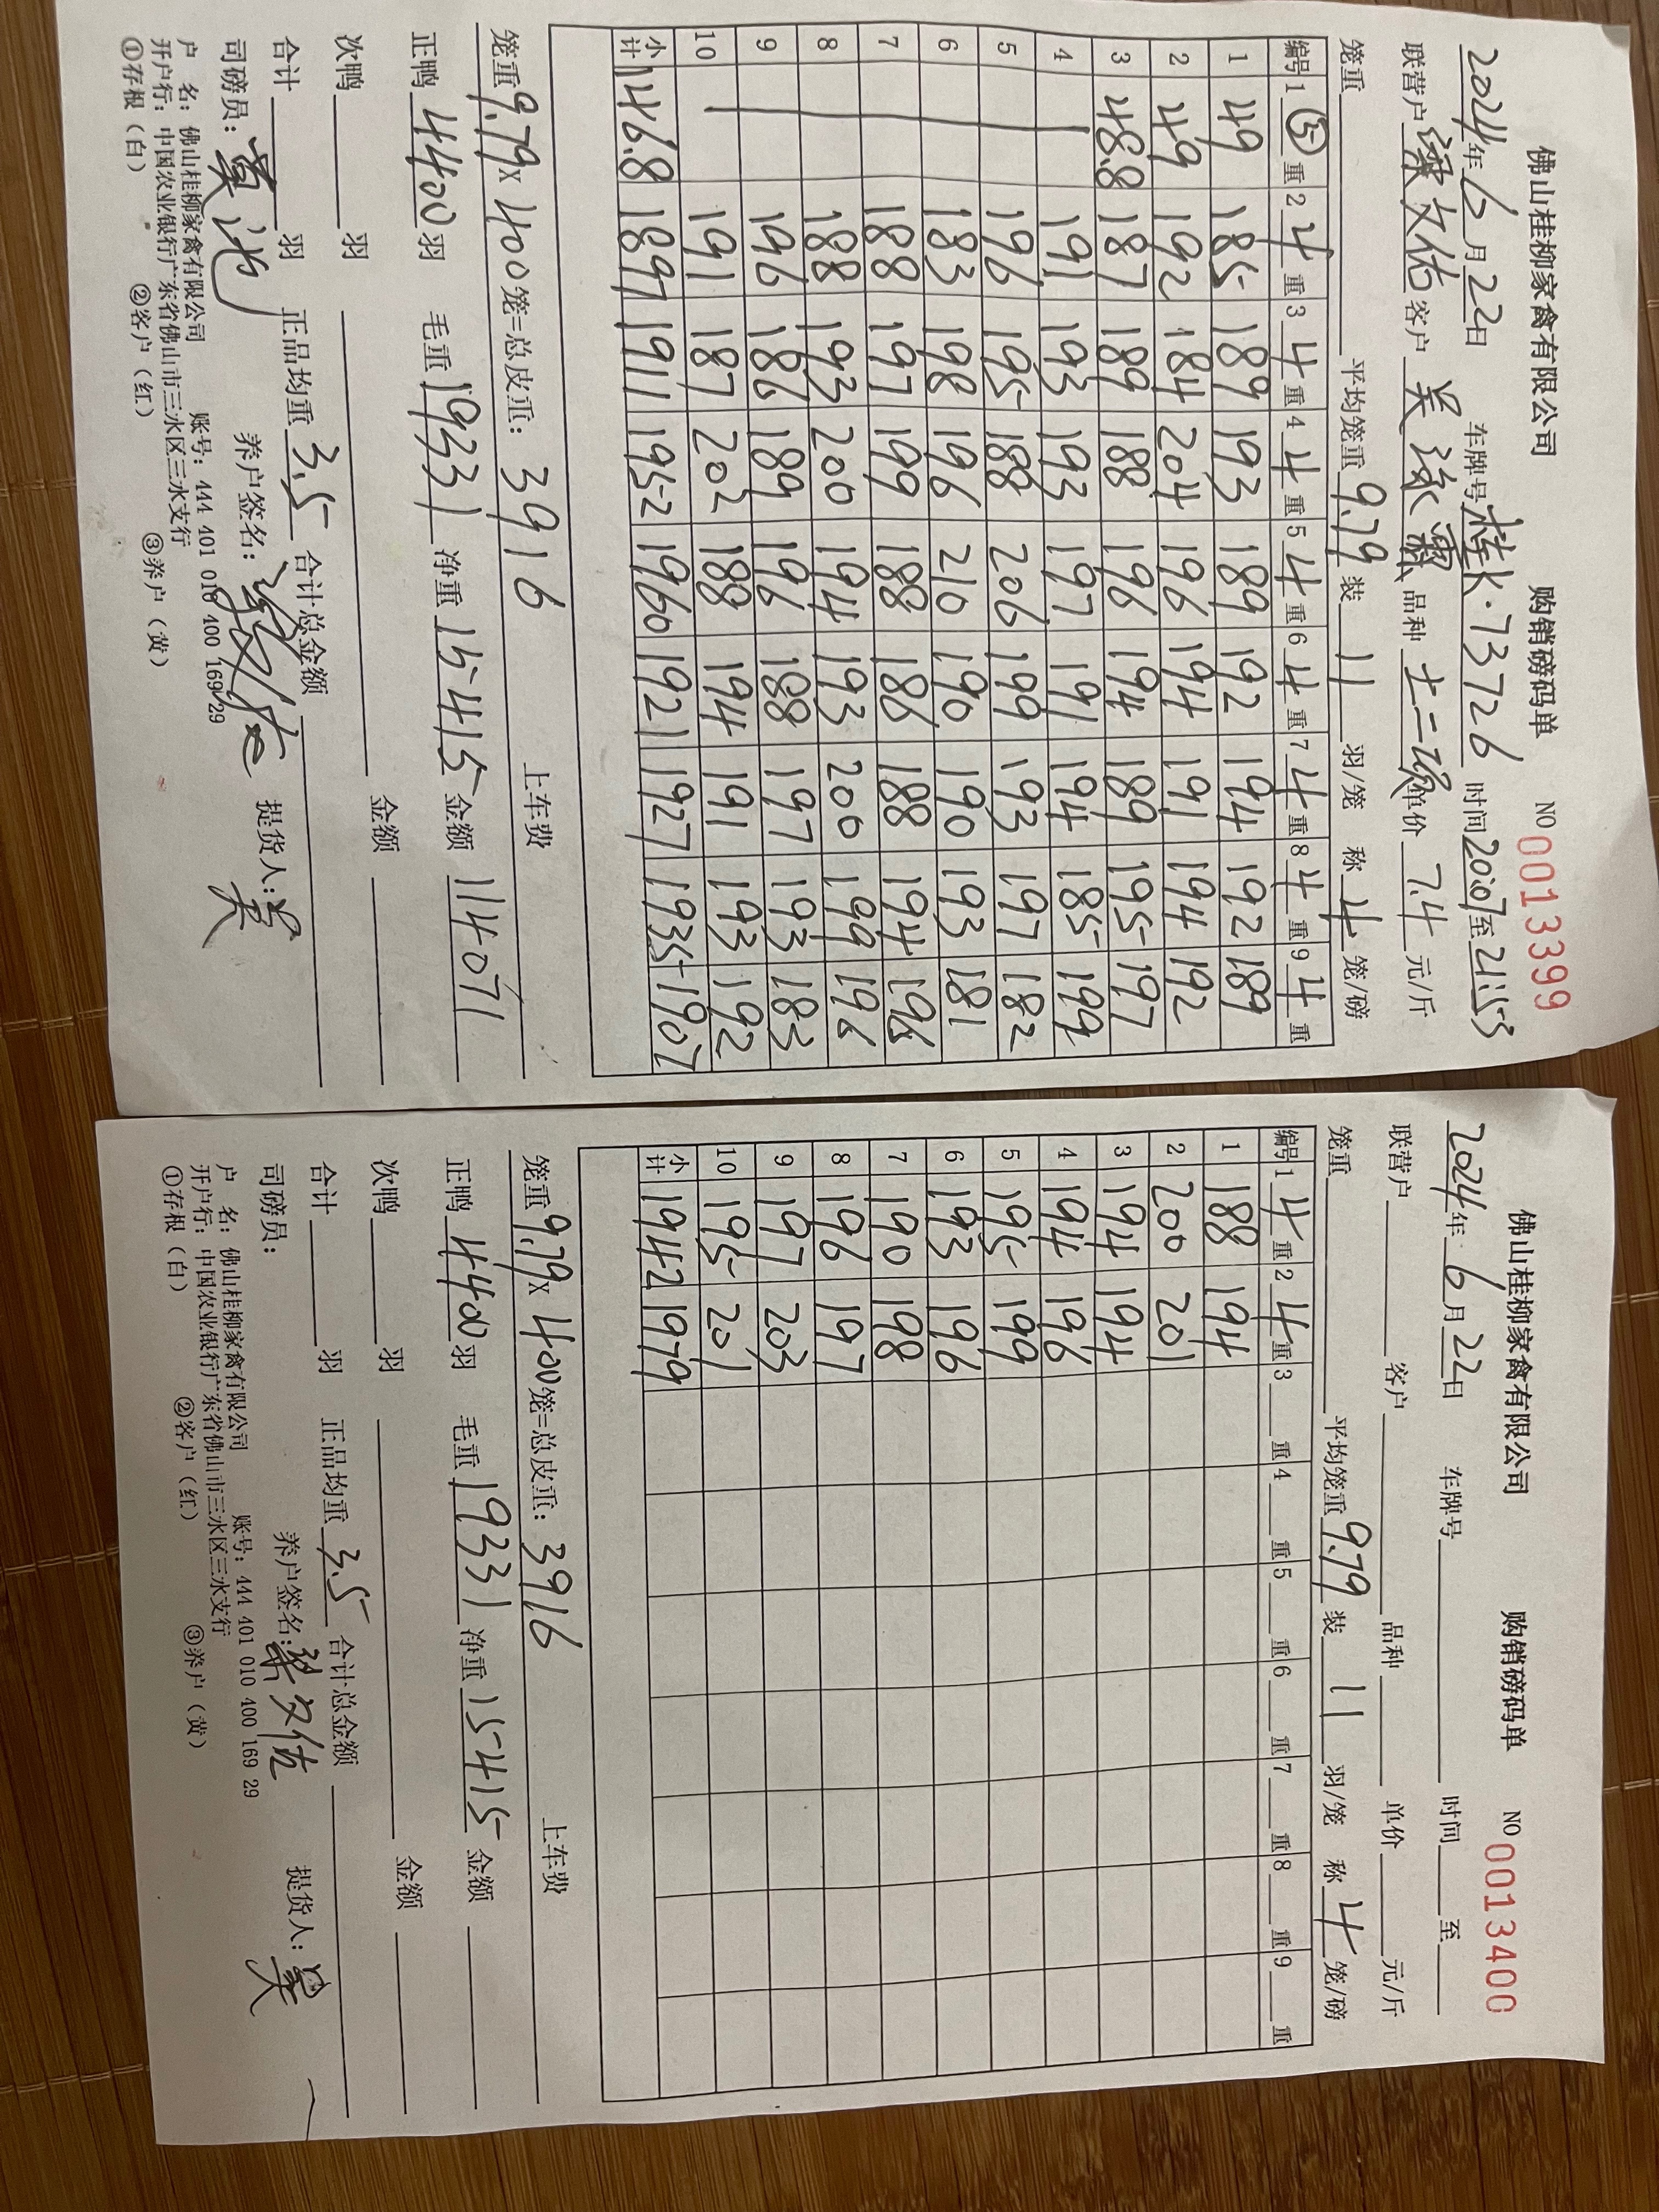 佛山桂柳家禽有限公司 购销磅码单 NO 0013399
2024年6月22日 车牌号桂K·73726 时间20:07至21:53
联营户梁文佑 客户吴 品种土二 单价7.4元/斤
笼重 平均笼重9.79 装11羽/笼 称4笼/磅
编号 1⑤重 2 4重 3 4重 4 4重 5 4重 6 4重 7 4重 8 4重 9 4重
1 49 185 189 193 189 192 194 192 189
2 49 192 184 204 196 194 191 194 192
3 48.8 187 189 188 196 194 189 195 197
4 191 193 193 197 191 194 185 199
5 196 195 188 206 199 193 197 182
6 183 198 196 210 190 190 193 181
7 188 197 199 188 186 188 194 196
8 188 193 200 194 193 200 199 196
9 196 186 189 196 188 197 193 183
10 191 187 202 188 194 191 193 192
小计 146.8 1897 1911 1952 1960 1921 1927 1935 1907
笼重9.79×400笼=总皮重:3916 上车费
正鸭4400羽 毛重19331 净重15415 金额114071
次鸭 羽 金额
合计 羽 正品均重3.5 合计总金额
司磅员:莫池 养户签名:梁文佑 提货人:吴
户 名:佛山桂柳家禽有限公司 账号:444 401 010 400 169 29
开户行:中国农业银行广东省佛山市三水区三水支行
①存根(白) ②客户(红) ③养户(黄)
佛山桂柳家禽有限公司 购销磅码单 NO 0013400
2024年6月22日 车牌号 时间 至
联营户 客户 品种 单价 元/斤
笼重 平均笼重9.79 装11羽/笼 称4笼/磅
编号 1 4重 2 4重 3 重 4 重 5 重 6 重 7 重 8 重 9 重
1 188 194
2 200 201
3 194 194
4 194 196
5 195 199
6 193 196
7 190 198
8 196 197
9 197 203
10 195 201
小计 1942 1979
笼重9.79×400笼=总皮重:3916 上车费
正鸭4400羽 毛重19331 净重15415 金额
次鸭 羽 金额
合计 羽 正品均重3.5 合计总金额
司磅员: 养户签名:梁文佑 提货人:吴
户 名:佛山桂柳家禽有限公司 账号:444 401 010 400 169 29
开户行:中国农业银行广东省佛山市三水区三水支行
①存根(白) ②客户(红) ③养户(黄)